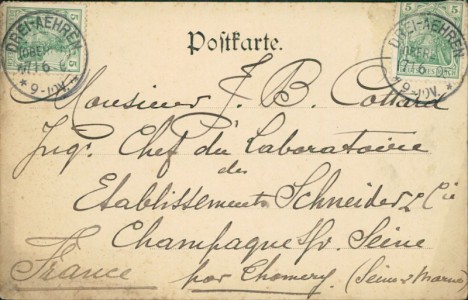 DREI-AEHREN
17/6
9-10V.
5
5
Postkarte.
DREI-AEHREN
17/6
9-10V.
5
5
Monsieur J. B. Cottard
Ing. Chef du Laboratoire
des
Etablissements Schneider & Cie
Champagne s/r Seine
France par Thomery. (Seine & Marne)